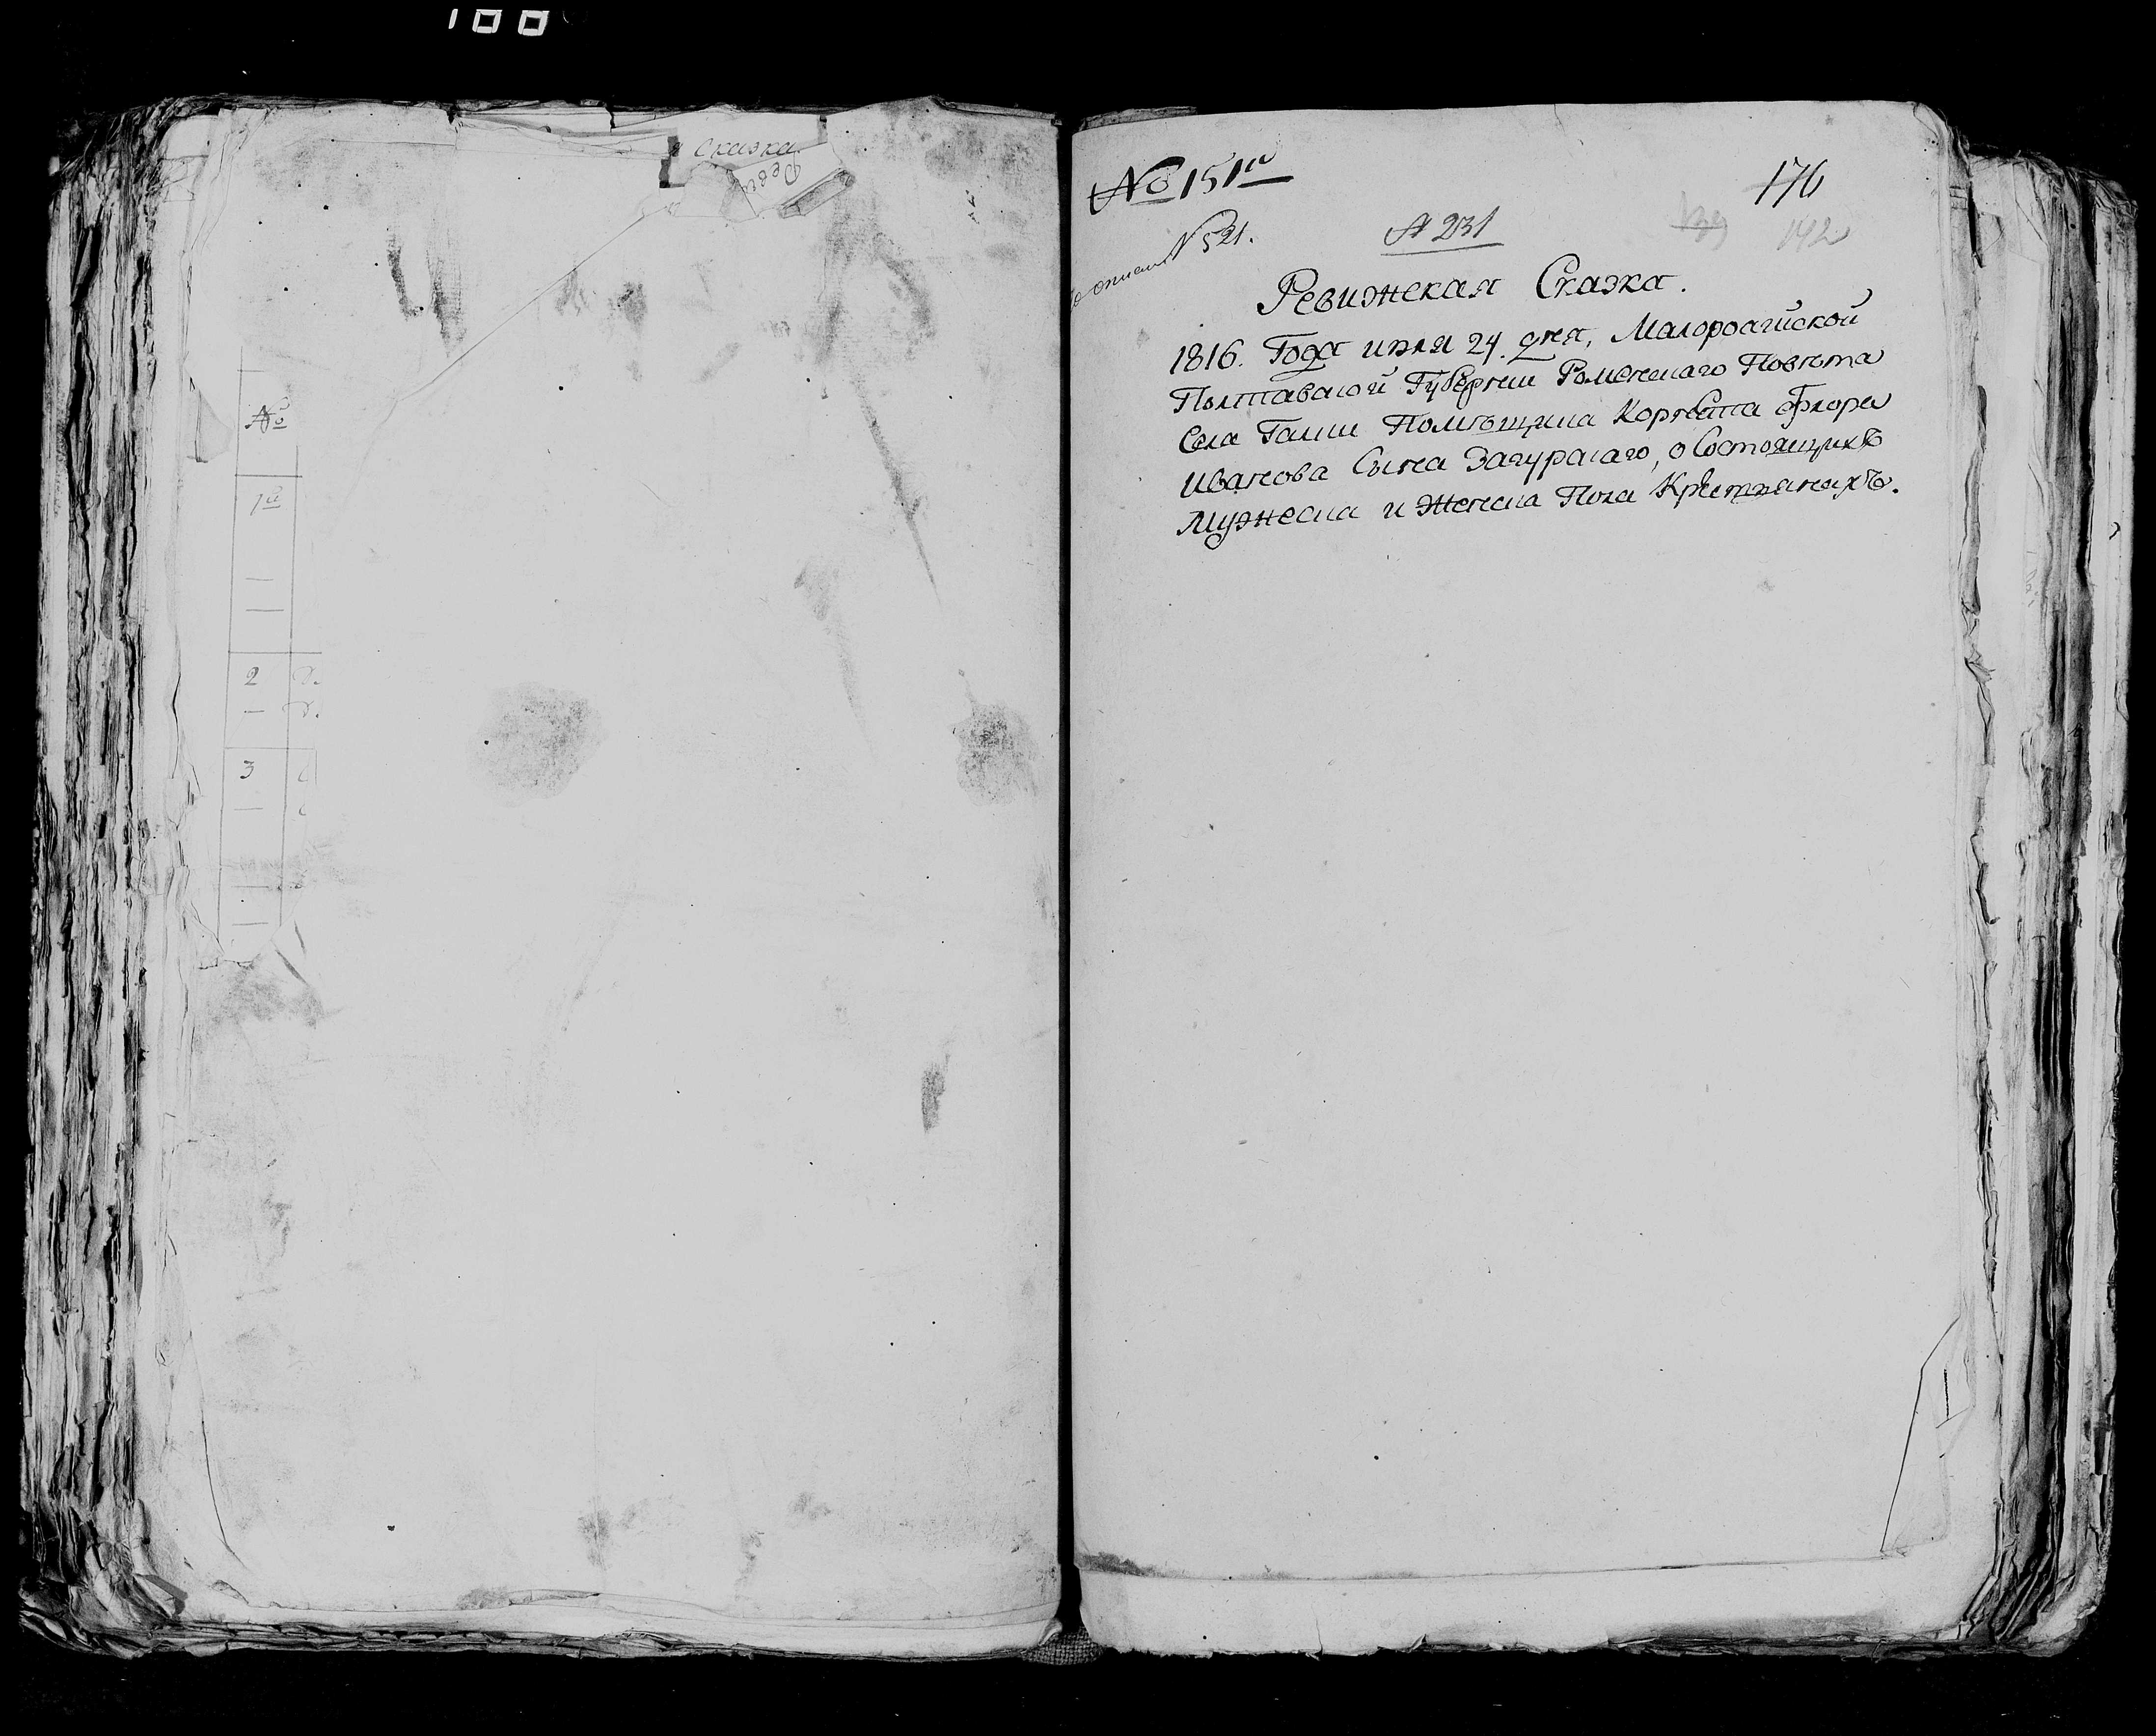 100
сказка.
Реви
№
1й
2
3
№ 151й
176
№ 521.
№ 231
139 142
Ревижская Сказка.
1816. Года июля 24. дня, Малоросийской
Полтавской Губернии Роменскаго Повѣта
Села Галки Помѣщика Корнета Флора
Иванова Сына Загурскаго, о Состоящихъ
Мужеска и Женска Пола Крестьянахъ.